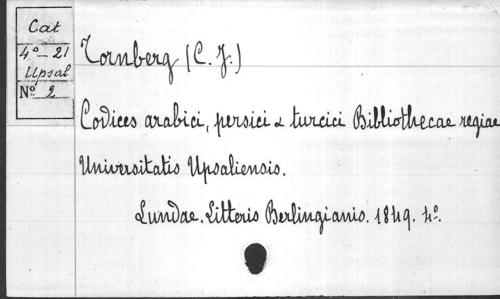 Cat
4º-21
Upsal
Nº 2
Tornberg (C. J.)
Codices arabici, persici & turcici Bibliothecae regiae
Universitatis Upsaliensis.
Lundae. Litteris Berlingianis. 1849. 4º.